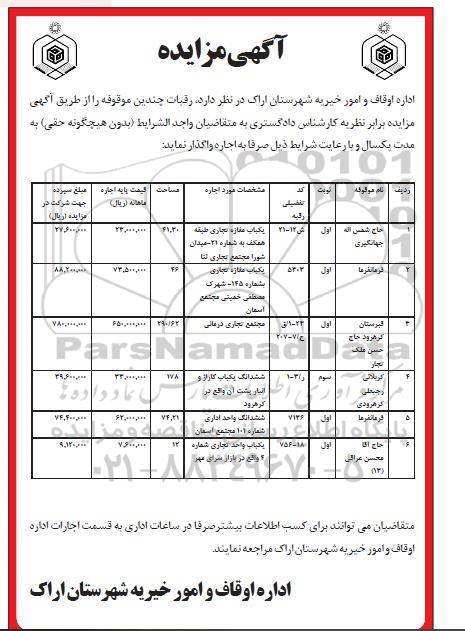 آگهی مزایده
اداره اوقاف و امور خیریه شهرستان اراک در نظر دارد، رقبات چندین موقوفه را از طریق آگهی
مزایده برابر نظریه کارشناس دادگستری به متقاضیان واجد الشرایط (بدون هیچگونه حقی) به
مدت یکسال و با رعایت شرایط ذیل صرفا به اجاره واگذار نماید:
ردیف نام موقوفه نوبت کد تفضیلی رقبه مشخصات مورد اجاره مساحت قیمت پایه اجاره ماهانه (ریال) مبلغ سپرده جهت شرکت در مزایده (ریال)
۱ حاج شمس اله جهانگیری اول ش۱۲-۲۱ یکباب مغازه تجاری طبقه همکف به شماره ۲۱-میدان شورا مجتمع تجاری ثنا ۴۱,۳۰ ۲۳,۰۰۰,۰۰۰ ۲۷,۶۰۰,۰۰۰
۲ فرمانفرما اول ۵۳۰۳ یکباب مغازه تجاری بشماره ۱۴۵- شهرک مصطفی خمینی مجتمع آسمان ۴۶ ۷۳,۵۰۰,۰۰۰ ۸۸,۲۰۰,۰۰۰
۳ قبرستان کرهرود حاج حسن ملک تجار اول ۲۳-۱/ق ح/۷-۲۰۷ مجتمع تجاری درمانی ۲۹۰/۶۲ ۶۵۰,۰۰۰,۰۰۰ ۷۸۰,۰۰۰,۰۰۰
۴ کربلائی رجبعلی کرهرودی سوم ر/۳-۱ ششدانگ یکباب گاراژ و انبار پشت آن واقع در کرهرود ۱۷۸ ۳۳,۰۰۰,۰۰۰ ۳۹,۶۰۰,۰۰۰
۵ فرمانفرما اول ۷۱۳۶ ششدانگ واحد اداری شماره ۱۰۱ مجتمع آسمان ۷۴,۲۱ ۶۲,۰۰۰,۰۰۰ ۷۴,۴۰۰,۰۰۰
۶ حاج آقا محسن عراقی (۱۳) اول ۷۵۶-۱۸ یکباب واحد تجاری شماره ۴ واقع در بازار سرای مهر ۱۲ ۷,۶۰۰,۰۰۰ ۹,۱۲۰,۰۰۰
متقاضیان می توانند برای کسب اطلاعات بیشتر صرفا در ساعات اداری به قسمت اجارات اداره
اوقاف و امور خیریه شهرستان اراک مراجعه نمایند.
اداره اوقاف و امور خیریه شهرستان اراک
ParsNamadData
۰۲۱-۸۸۳۴۹۶۷۰-۵